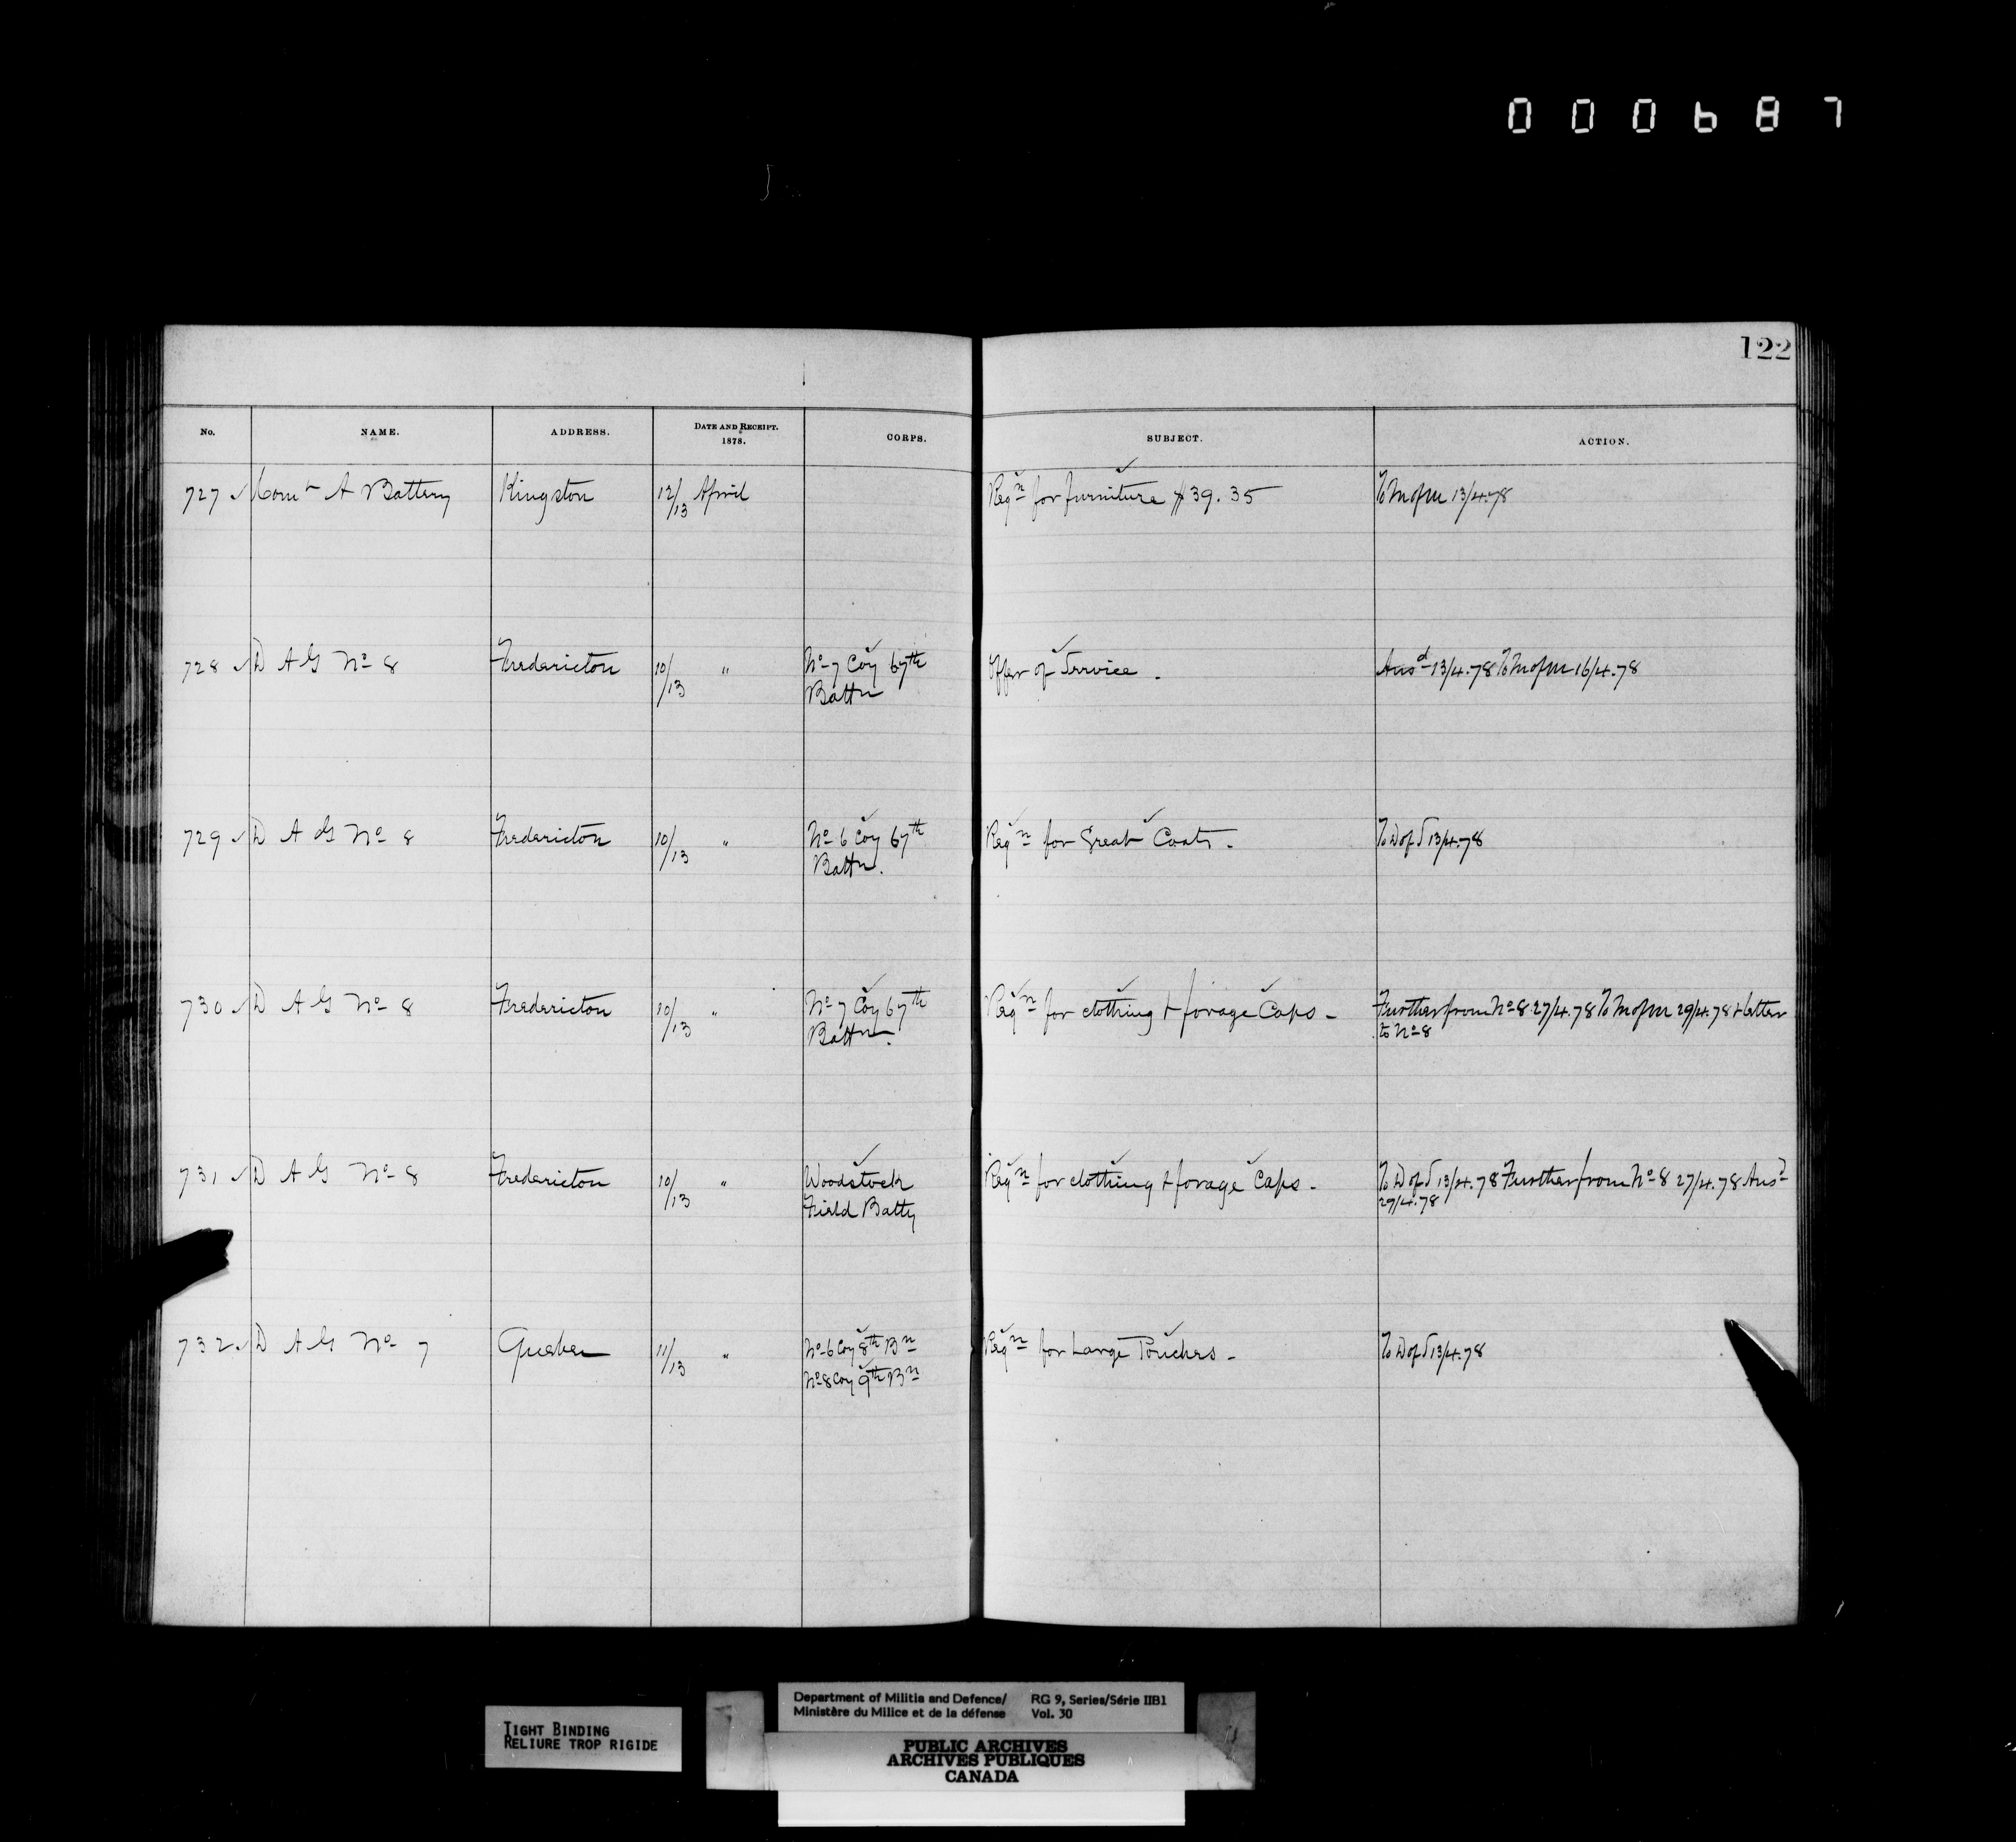 000687
122
No. NAME. ADDRESS. DATE AND RECEIPT. 1878. CORPS. SUBJECT. ACTION.
727 Comt A Battery Kingston 12/13 April Reqn for furniture $39.35 To M of M 13/4.78
728 D A G No 8 Fredericton 10/13 " No 7 Coy 67th Offer of Service. Ansd 13/4.78 To M of M 16/4.78
Battn
729 D A G No 8 Fredericton 10/13 " No 6 Coy 67th Reqn for Great Coats - To D of S 13/4.78
Battn.
730 D A G No 8 Fredericton 10/13 " No 7 Coy 67th Reqn for clothing + forage Caps - Further from No 8 27/4.78 To M of M 29/4.78 + letter
Battn. to No 8
731 D A G No 8 Fredericton 10/13 " Woodstock Reqn for clothing + forage Caps - To D of S 13/4.78 Further from No 8 27/4.78 Ansd
Field Batty 29/4.78
732 D A G No 7 Quebec 11/13 " No 6 Coy 8th Bn Reqn for Large Pouches - To D of S 13/4.78
No 8 Coy 9th Bn
TIGHT BINDING
RELIURE TROP RIGIDE
Department of Militia and Defence/ RG 9, Series/Série IIB1
Ministère du Milice et de la défense Vol. 30
PUBLIC ARCHIVES
ARCHIVES PUBLIQUES
CANADA